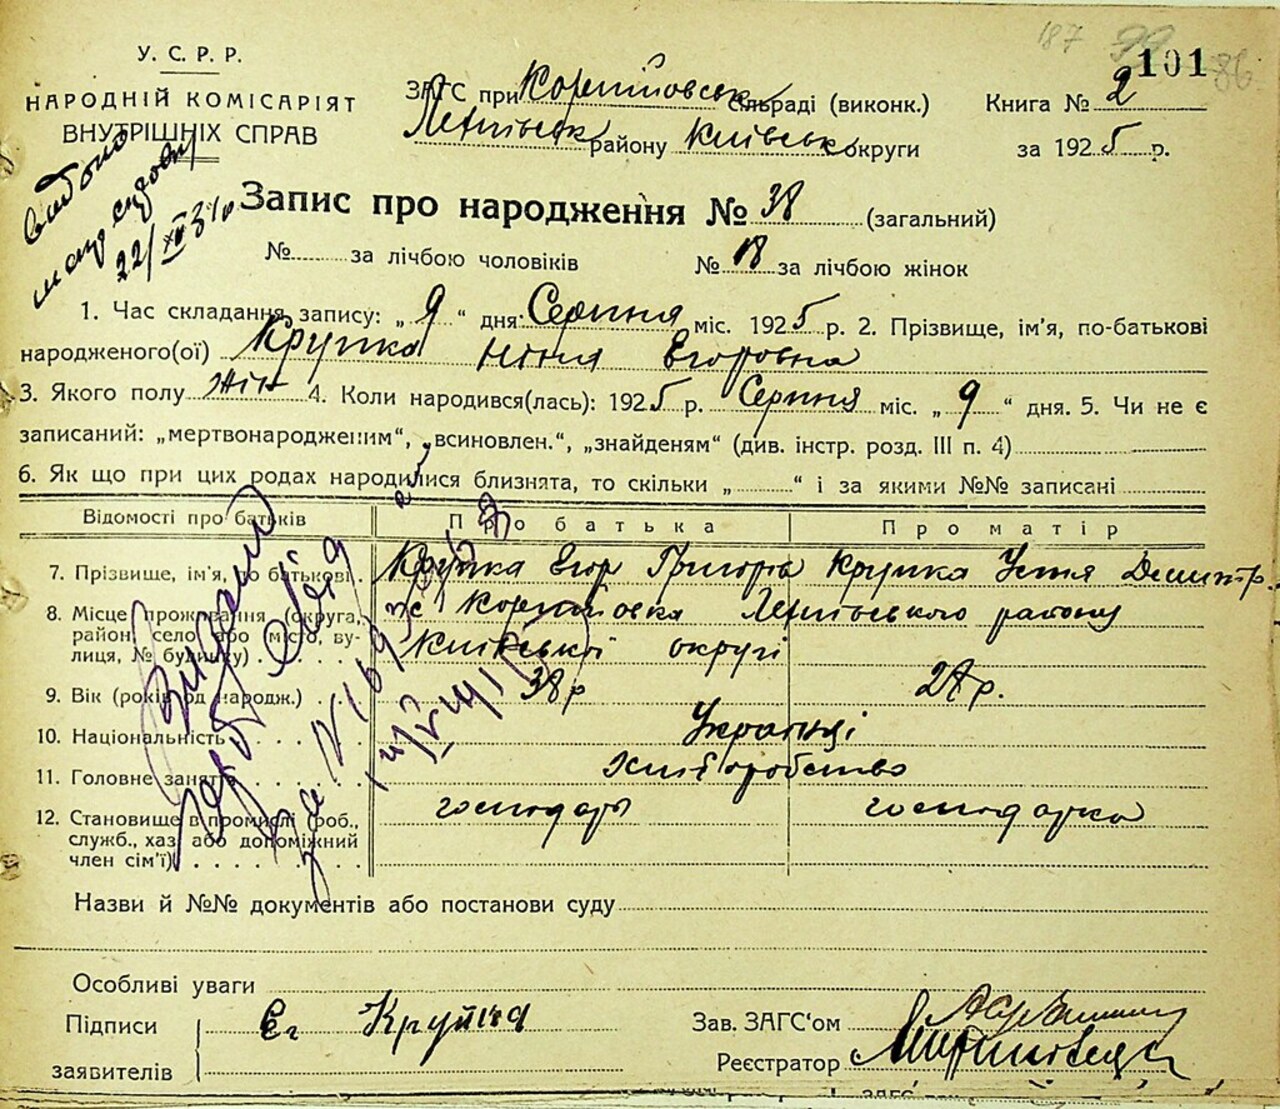 187 99 101 86
У. С. Р. Р.
НАРОДНІЙ КОМІСАРІЯТ
ВНУТРІШНІХ СПРАВ
ЗАГС при сільраді (виконк.)
району Київськ округи
Книга № 2
за 1925 р.
22/XII 31р
Запис про народження № 38 (загальний)
№ за лічбою чоловіків № 18 за лічбою жінок
1. Час складання запису: „ 9 “ дня Серпня міс. 1925 р. 2. Прізвище, ім’я, по-батькові
народженого(ої) Крупка Ніна Егоровна
3. Якого полу Жін 4. Коли народився(лась): 1925 р. Серпня міс. „ 9 “ дня. 5. Чи не є
записаний: „мертвонародженим“, „всиновлен.“, „знайденям“ (див. інстр. розд. III п. 4)
6. Як що при цих родах народилися близнята, то скільки „ “ і за якими №№ записані
Відомості про батьків Про батька Про матір
7. Прізвище, ім’я, по батькові. Крупка Егор Григорів Крупка Устя Дмитр.
8. Місце прожування (округа, району
район, село або місто, ву- Київської округі
лиця, № будинку)
9. Вік (років од народж.) 38 р 27 р.
10. Національність Українці
11. Головне заняття Хліборобство
12. Становище в промислі (роб., господарь господарка
служб., хаз. або допоміжний
член сім’ї)
Видани
Назви й №№ документів або постанови суду
Особливі уваги
Підписи Ег Крупка
заявителів
Зав. ЗАГС‘ом
Реєстратор